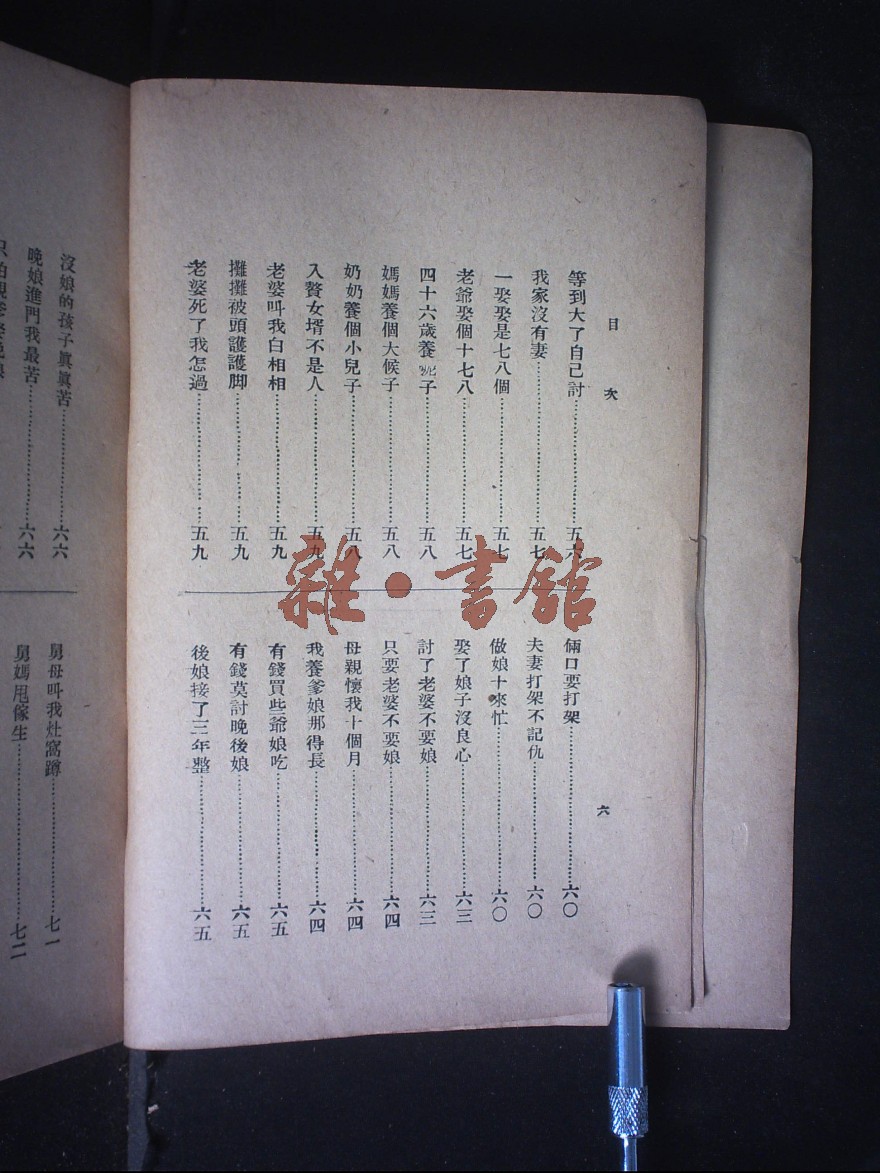 目次
六
等到大了自己討……五六
我家沒有妻……五七
一娶娶是七八個……五七
老爺娶個十七八……五七
四十六歲養 子……五八
媽媽養個大候子……五八
奶奶養個小兒子……五八
入贅女壻不是人……五九
老婆叫我白相相……五九
攤攤被頭護護脚……五九
老婆死了我怎過……五九
倆口要打架……六〇
夫妻打架不記仇……六〇
做娘十來忙……六〇
娶了娘子沒良心……六三
討了老婆不要娘……六三
只要老婆不要娘……六四
母親懷我十個月……六四
我養爹娘那得長……六四
有錢買些爺娘吃……六五
有錢莫討晚後娘……六五
後娘接了三年整……六五
沒娘的孩子眞眞苦……六六
晚娘進門我最苦……六六
舅母叫我灶窩蹲……七一
舅媽甩傢生……七二
雜·書館